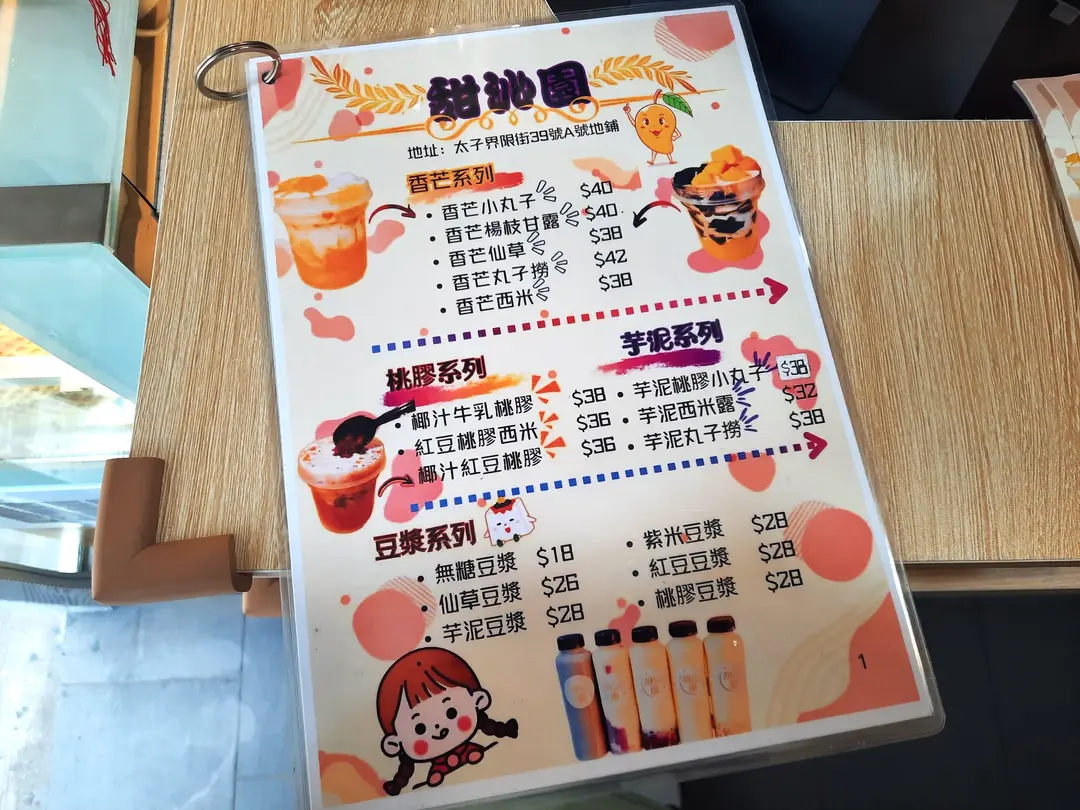 甜沁園
地址：太子界限街39號A號地鋪
香芒系列
• 香芒小丸子 $40
• 香芒楊枝甘露 $40
• 香芒仙草 $38
• 香芒丸子撈 $42
• 香芒西米 $38
桃膠系列
• 椰汁牛乳桃膠 $38
• 紅豆桃膠西米 $36
• 椰汁紅豆桃膠 $36
芋泥系列
• 芋泥桃膠小丸子 $38
• 芋泥西米露 $32
• 芋泥丸子撈 $38
豆漿系列
• 無糖豆漿 $18
• 仙草豆漿 $26
• 芋泥豆漿 $28
• 紫米豆漿 $28
• 紅豆豆漿 $28
• 桃膠豆漿 $28
1